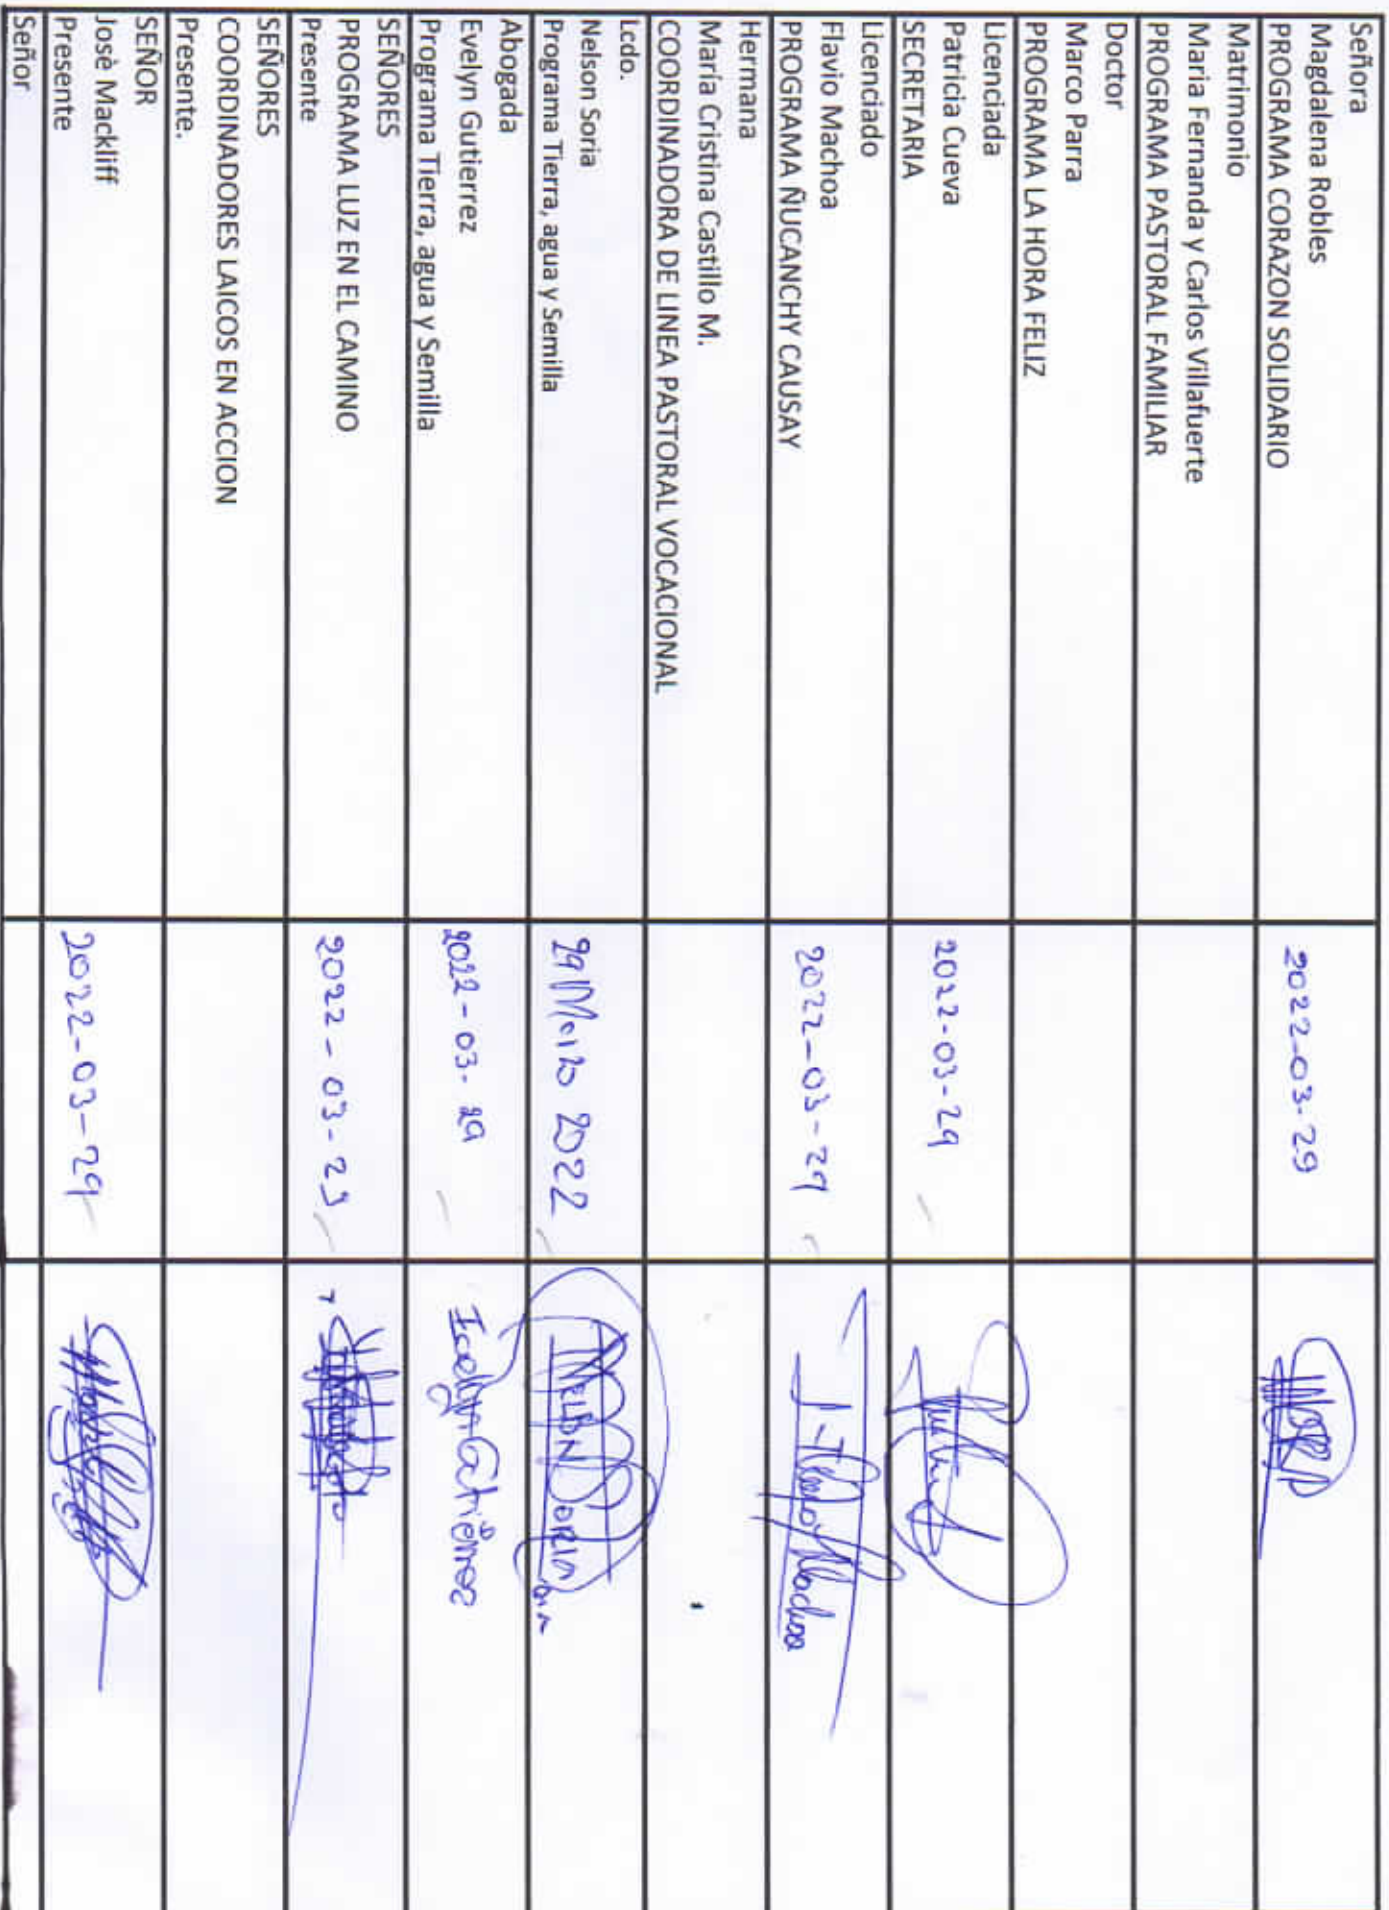 Señora
Magdalena Robles
PROGRAMA CORAZON SOLIDARIO
2022-03-29
Matrimonio
Maria Fernanda y Carlos Villafuerte
PROGRAMA PASTORAL FAMILIAR
Doctor
Marco Parra
PROGRAMA LA HORA FELIZ
Licenciada
Patricia Cueva
SECRETARIA
2022-03-29
Licenciado
Flavio Machoa
PROGRAMA ÑUCANCHY CAUSAY
2022-03-29
Hermana
María Cristina Castillo M.
COORDINADORA DE LINEA PASTORAL VOCACIONAL
Lcdo.
Nelson Soria
Programa Tierra, agua y Semilla
29 Marzo 2022
NELSON SORIA
Abogada
Evelyn Gutierrez
Programa Tierra, agua y Semilla
2022-03-29
Evelyn Gutierrez
SEÑORES
PROGRAMA LUZ EN EL CAMINO
Presente
2022-03-29
SEÑORES
COORDINADORES LAICOS EN ACCION
Presente.
SEÑOR
Josè Mackliff
Presente
2022-03-29
Señor